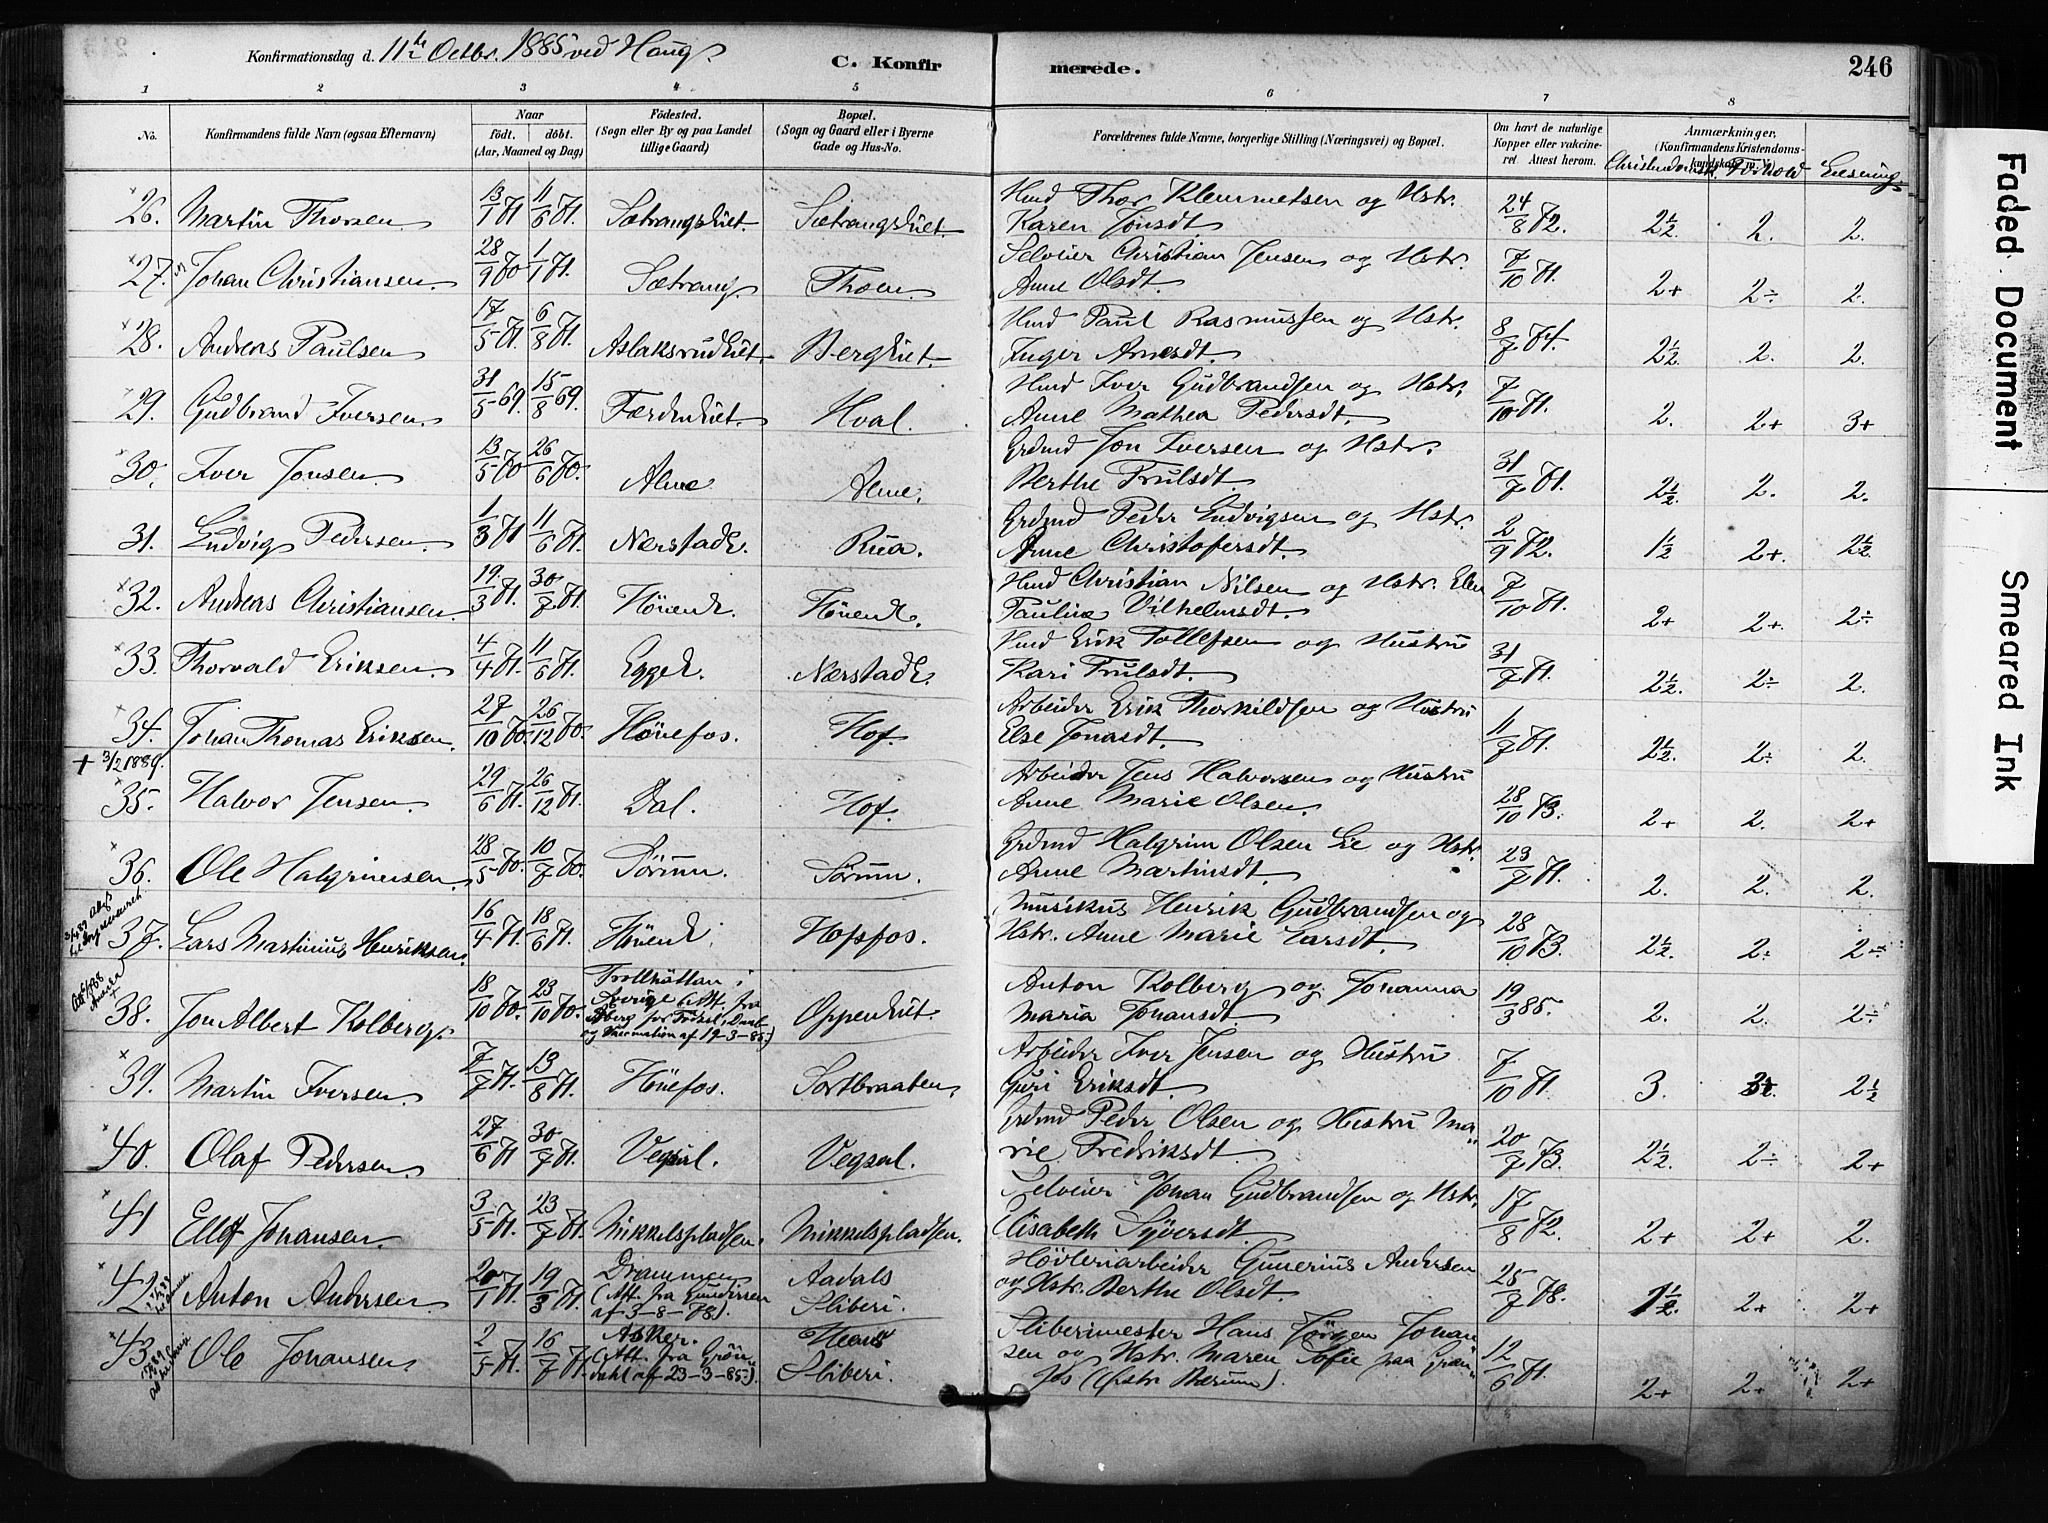 Konfirmationsdag d. 11te Octbr. 1885 ved Haug. C. Konfirmerede. 246
1 2 3 4 5 6 7 8
No. Konfirmandens fulde Navn (ogsaa Efternavn) Naar født. døbt. (Aar, Maaned og Dag) Fødested. (Sogn eller By og paa Landet tillige Gaard) Bopæl. (Sogn og Gaard eller i Byerne Gade og Hus-No. Forældrenes fulde Navne, borgerlige Stilling (Næringsvei) og Bopæl. Om havt de naturlige Kopper eller vakcineret Attest herom. Anmærkninger, (Konfirmandens Kristendomskundskab m. V.) Christendomsk. Forhold Læsning
26. Martin Thorsen. 13/1 71 11/6 71. Sætrangseiet. Sætrangseiet. Hmd Thor Klemmetsen og Hstr. Karen Jonsdt. 24/8 72. 2½. 2. 2.
27. Johan Christiansen. 28/9 70 1/1 71. Sætrang. Thoen. Selveier Christian Jensen og Hstr. Anne Olsdt. 7/10 71. 2+ 2÷ 2.
28. Andreas Paulsen. 17/5 71. 6/8 71. Aslaksrudeiet. Bergeiet. Hmd Paul Rasmussen og Hstr. Inger Arnesdt. 8/7 74. 2½ 2. 2.
29. Gudbrand Iversen. 31/5 69. 15/8 69. Færdeneiet. Hval. Hmd Iver Gudbrandsen og Hstr. Anne Mathea Pedersdt. 7/10 71. 2. 2+ 3+
30. Iver Jonsen. 13/5 70 26/6 70. Alme Alme. Grdmd Jon Iversen og Hstr. Berthe Trulsdt. 31/7 71. 2½. 2. 2.
31. Ludvig Pedersen. 1/3 71 11/6 71. Nærstade. Rua. Grdmd Peder Ludvigsen og Hstr. Anne Christofersdt. 2/9 72. 1½ 2+. 2½.
32. Andreas Christiansen. 19/3 71. 30/7 71. Hønene. Hønene. Hmd Christian Nilsen og Hstr. Elen Pauline Vilhelmsdt. 7/10 71. 2+ 2+. 2÷
33. Thorvald Eriksen. 4/4 71. 11/6 71. Egge. Nærstade. Hmd Erik Tollefsen og Hustru Kari Trulsdt. 31/7 71. 2½. 2÷ 2.
34. Johan Thomas Eriksen. 27/10 70. 26/12 70. Hönefos. Hof. Arbeider Erik Thorkildsen og Hustru Else Jonasdt. 11/7 71. 2½. 2÷ 2.
+ 3/2 1889.
35. Halvor Jensen. 29/6 71. 26/12 71. Dal. Hof. Arbeider Jens Halvorsen og Hustru Anne Marie Olsen. 28/10 73. 2+ 2. 2+
36. Ole Halgrimsen. 28/5 70. 10/7 70. Sörum. Sörum. Grdmd Halgrim Olsen Lie og Hstr. Anne Martinsdt. 23/7 71. 2. 2. 2.
37. Lars Martinius Henriksen. 16/4 71. 18/6 71. Hönene. Hopfos. Musikus Henrik Gudbrandsen og Hstr. Anne Marie Larsdt. 28/10 73. 2½. 2÷ 2÷
38. Jon Albert Kolberg. 18/10 70. 23/10 70. Trollhättan i Sverige (Att. fra Åberg for Födsel, Daab og Vaccination af 19-3-85.) Oppeneiet. Anton Kolberg og Johanna Maria Johansdt. 19/3 85. 2. 2. 2÷
39. Martin Iversen. 7/7 71. 13/8 71. Hönefos. Sortbraaten. Arbeider Iver Jensen og Hustru Guri Eriksdt. 7/10 71. 3. 2½
40. Olaf Pedersen 27/6 71 30/7 71. Vegsal. Vegsal. Grdmd Peder Olsen og Hustru Marie Fredriksdt. 20/7 73. 2½. 2÷ 2+
41 Ellef Johansen. 3/5 71. 23/7 71. Mikkelspladsen. Mikkelspladsen. Selveier Johan Gudbrandsen og Hstr. Elisabeth Syversdt. 17/8 72. 2+ 2+ 2.
42. Anton Andersen. 20/1 71. 19/3 71. Drammen (Att. fra Gundersen af 3-8-78). Aadals Sliberi. Høvleriarbeider Gunerius Andersen og Hstr. Berthe Olsdt. 25/7 78. 1½ 2+ 2+
43. Ole Johansen. 2/5 71. 16/7 71. Asker. (Att. fra Gröndahl af 23-3-85.) Heens Sliberi. Sliberimester Hans Jörgen Johansen og Hstr. Maren Sofie paa Granfos (Östr. Bærum). 12/6 71. 2+ 2+ 2+
Faded Document
Smeared Ink